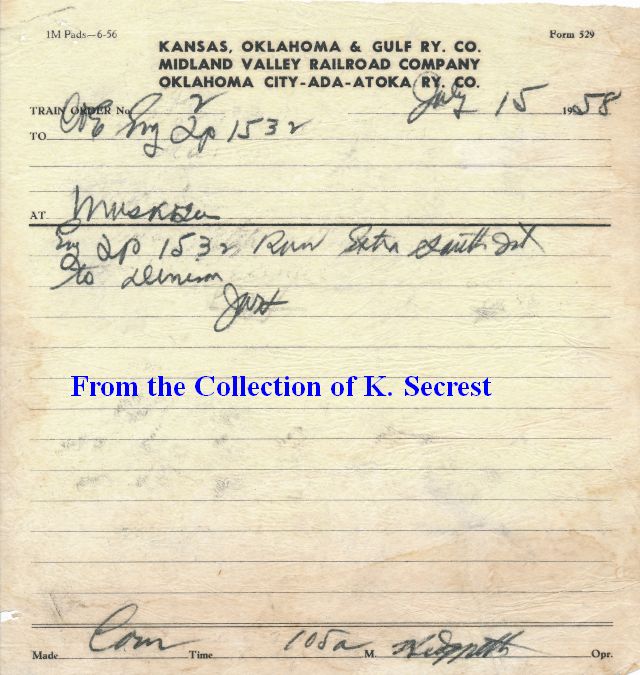 1M Pads—6-56 Form 529
KANSAS, OKLAHOMA & GULF RY. CO.
MIDLAND VALLEY RAILROAD COMPANY
OKLAHOMA CITY-ADA-ATOKA RY. CO.
TRAIN ORDER No. 2 July 15 1958
TO C&E Eng Qp 1532
AT Muskogee
Eng Qp 1532 Run Extra South Jct
to Denison
From the Collection of K. Secrest
Made Com Time 105a M. Opr.